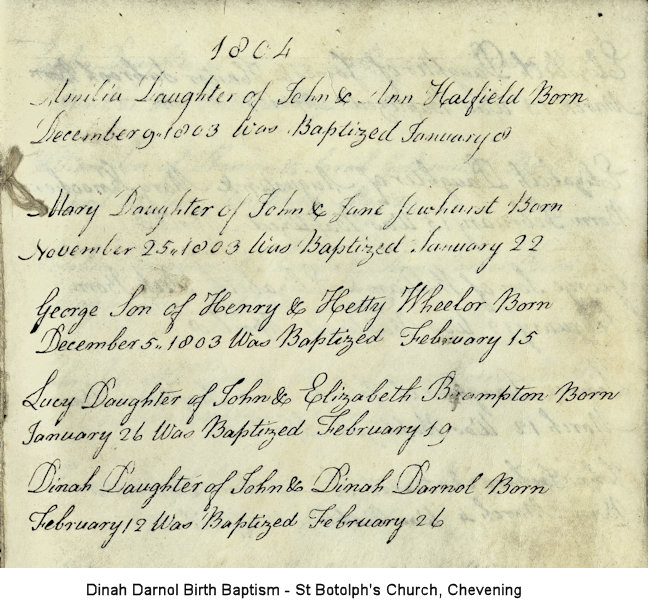 1804
Amilia Daughter of John & Ann Hatfield Born
December 9.. 1803 Was Baptized January 8
Mary Daughter of John & Jane Jewhurst Born
November 25.. 1803 Was Baptized January 22
George Son of Henry & Hetty Wheelor Born
December 5.. 1803 Was Baptized February 15
Lucy Daughter of John & Elizabeth Brampton Born
January 26 Was Baptized February 19
Dinah Daughter of John & Dinah Darnol Born
February 12 Was Baptized February 26
Dinah Darnol Birth Baptism - St Botolph's Church, Chevening